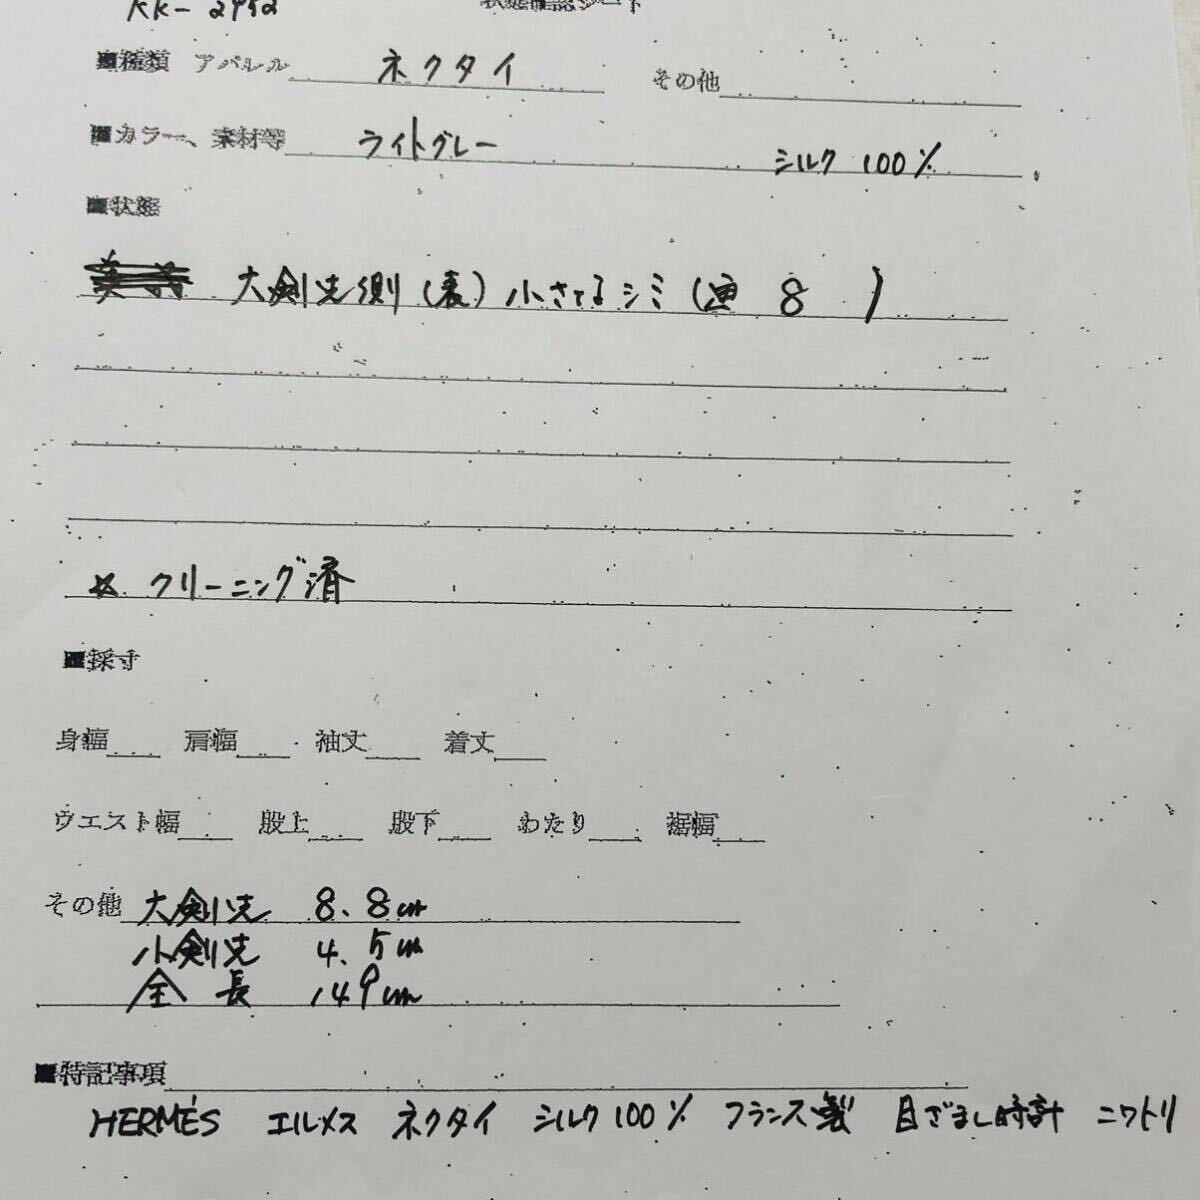 KK-2952 状態確認シート
■種類 アパレル ネクタイ その他
■カラー、素材等 ライトグレー シルク 100%
■状態
大剣先側(表)小さなシミ(画 8 )
☆ クリーニング済
■採寸
身幅 肩幅 袖丈 着丈
ウエスト幅 股上 股下 わたり 裾幅
その他 大剣先 8.8cm
小剣先 4.5cm
全長 149cm
■特記事項
HERMÈS エルメス ネクタイ シルク100% フランス製 目ざまし時計 ニワトリ